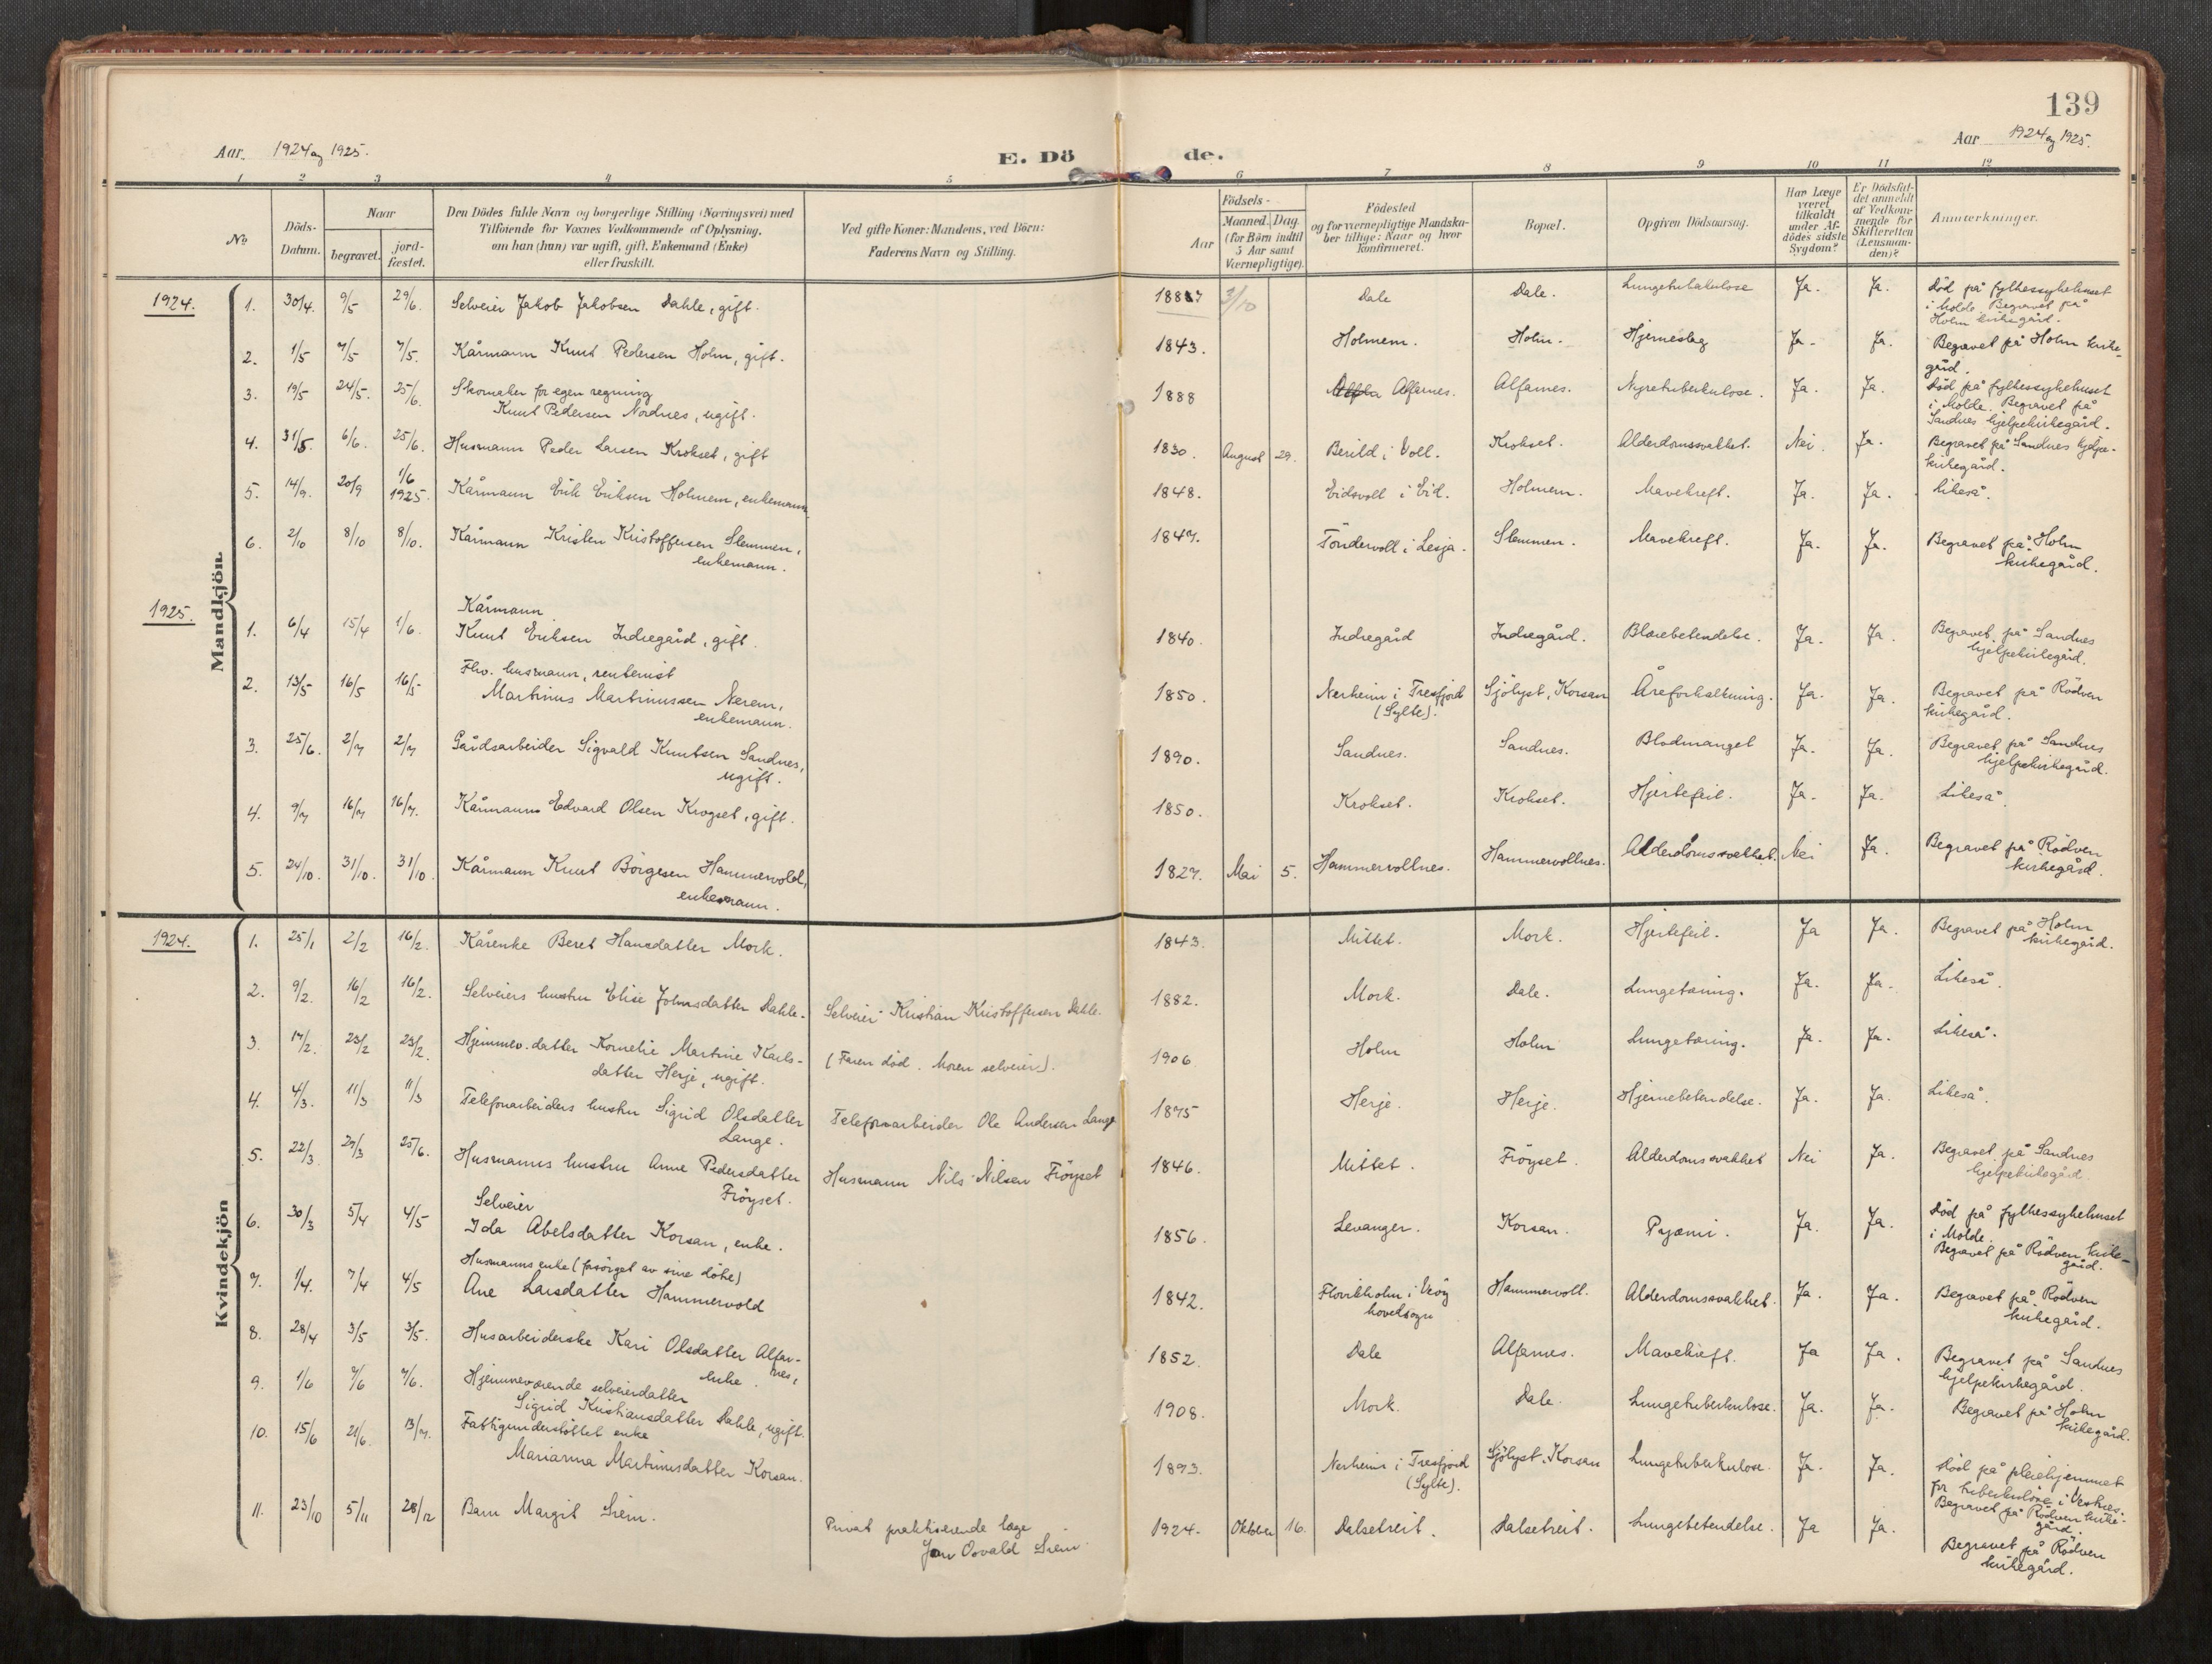 139
Aar. 1924 og 1925.
E. Dö de.
Aar 1924 og 1925.
1 2 3 4 5 6 7 8 9 10 11 12
No
Döds-Datum.
Naar
begravet.
jord-fæstet.
Den Dödes fulde Navn og borgerlige Stilling (Næringsvei) med
Tilföiende for Voxnes Vedkommende af Oplysning,
om han (hun) var ugift, gift, Enkemand (Enke)
eller fraskilt.
Ved gifte Koner: Mandens, ved Börn:
Faderens Navn og Stilling.
Födsels-
Aar
Maaned. Dag.
(for Börn indtil
5 Aar samt
Værnepligtige).
Födested
og for værnepligtige Mandska-
ber tillige: Naar og hvor
konfirmeret.
Bopæl.
Opgiven Dödsaarsag.
Har Læge
været
tilkaldt
under Af-
dödes sidste
Sygdom?
Er Dödsfal-
det anmeldt
af Vedkom-
mende for
Skifteretten
(Lensman-
den)?
Anmærkninger.
Mandkjön.
1924.
1. 30/4. 9/5 29/6. Selveier Jakob Jakobsen Dahle, gift. 1887 3/10 Dale Dale. Lungetuberkulose Ja. Ja. Död på fylkessykehuset
i Molde. Begravet på
Holm kirkegård.
2. 1/5 7/5 7/5. Kårmann Knut Pedersen Holm, gift. 1843. Holmem. Holm. Hjerneslag Ja. Ja. Begravet på Holm kirke-
gård.
3. 19/5 24/5. 25/6. Skomaker for egen regning
Knut Pedersen Nordnes, ugift. 1888 Alfarnes. Alfarnes. Nyretuberkulose. Ja. Ja. Död på fylkessykehuset
i Molde. Begravet på
Sandnes hjelpekirkegård.
4. 31/5. 6/6. 25/6. Husmann Peder Larsen Krokset, gift 1830. August 29. Berild i Voll. Krokset. Alderdomssvakhet. Nei. Ja. Begravet på Sandnes hjelpe-
kirkegård.
5. 14/9. 20/9 1/6 1925. Kårmann Erik Eriksen Holmem, enkemann. 1848. Eidsvoll i Eid. Holmem. Mavekreft. Ja. Ja. Likeså.
6. 2/10 8/10 8/10. Kårmann Kristen Kristoffersen Stemmen,
enkemann. 1847. Töndervoll i Lesja. Stemmen. Mavekreft. Ja. Ja. Begravet på Holm
kirkegård.
1925.
1. 6/4 15/4 1/6. Kårmann
Knut Eriksen Indregård, gift. 1840. Indregård Indregård. Blærebetendelse. Ja. Ja. Begravet på Sandnes
hjelpekirkegård.
2. 13/5 16/5 16/5 Fhv. husmann, rentenist
Martinus Martinussen Nerem,
enkemann. 1850. Nerheim i Tresfjord
(Sylte). Sjölyst, Korsan Åreforkalkning. Ja. Ja. Begravet på Rödven
kirkegård.
3. 25/6. 2/7 2/7 Gårdsarbeider Sigvald Knutsen Sandnes,
ugift. 1890. Sandnes. Sandnes. Blodmangel Ja. Ja. Begravet på Sandnes
hjelpekirkegård.
4. 9/7 16/7 16/7. Kårmann Edvard Olsen Krogset, gift. 1850. Krokset. Krokset. Hjertefeil. Ja. Ja. Likeså.
5. 24/10. 31/10. 31/10. Kårmann Knut Börgesen Hammervold,
enkemann. 1827. Mai 5. Hammervollnes. Hammervollnes. Alderdomssvakhet. Nei Ja. Begravet på Rödven
kirkegård.
Kvindekjön
1924.
1. 25/1 2/2 16/2. Kårenke Beret Hansdatter Mork. 1843. Mittet. Mork. Hjertefeil. Ja Ja. Begravet på Holm
kirkegård.
2. 9/2. 16/2 16/2. Selveiers hustru Elise Johnsdatter Dahle. Selveier Kristian Kristoffersen Dahle. 1882. Mork. Dale. Lungetæring. Ja. Ja. Likeså.
3. 17/2. 23/2 23/2. Hjemmev. datter Kornelie Martine Karls-
datter Herje, ugift. (Faren död. Moren selveier). 1906 Holm Holm Lungetæring. Ja. Ja. Likeså.
4. 4/3. 11/3 11/3 Telefonarbeiders hustru Sigrid Olsdatter
Lange. Telefonarbeider Ole Andersen Lange 1875 Herje. Herje. Hjernebetendelse. Ja. Ja. Likeså.
5. 22/3 29/3 25/6. Husmanns hustru Anne Pedersdatter
Fröyset. Husmann Nils Nilsen Fröyset 1846. Mittet. Fröyset. Alderdomssvakhet Nei Ja. Begravet på Sandnes
hjelpekirkegård.
6. 30/3 5/4 4/5 Selveier
Ida Abelsdatter Korsan, enke. 1856. Levanger. Korsan. Pyæmi. Ja. Ja. Död på fylkessykehuset
i Molde.
Begravet på Rödven kirke-
gård.
7. 1/4. 7/4 4/5 Husmanns enke (forsörget av sine döhe)
Ane Larsdatter Hammervold 1842. Flovikholm i Veöy
hovedsogn Hammervoll. Alderdomssvakhet. Ja. Ja. Begravet på Rödven
kirkegård.
8. 28/4 3/5 3/5. Husarbeiderske Kari Olsdatter Alfar-
nes,
enke. 1852. Dale Alfarnes. Mavekreft. Ja Ja. Begravet på Sandnes
hjelpekirkegård.
9. 1/6 7/6 7/6. Hjemmeværende selveierdatter
Sigrid Kristiansdatter Dahle, ugift. 1908. Mork. Dale. Lungetuberkulose. Ja. Ja. Begravet på Holm
kirkegård.
10. 15/6 21/6. 13/7. Fattigunderstöttet enke
Marianna Martinusdatter Korsan. 1893. Nerheim i Tresfjord
(Sylte). Sjölyst, Korsan Lungetuberkulose. Ja. Ja. Död på pleiehjemmet
for tuberkulöse i Vestnes.
Begravet på Rödven kirke-
gård.
11. 23/10 5/11 28/12 Barn Margit Siem. Privat praktiserende læge
Jon Osvald Siem. 1924. Oktober 16. Dalsetreit. Dalsetreit. Lungebetendelse. Ja Ja. Begravet på Rödven
kirkegård.